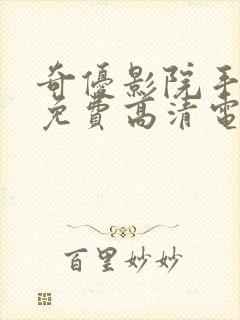 奇優影院手
免費高清電
百里妙妙